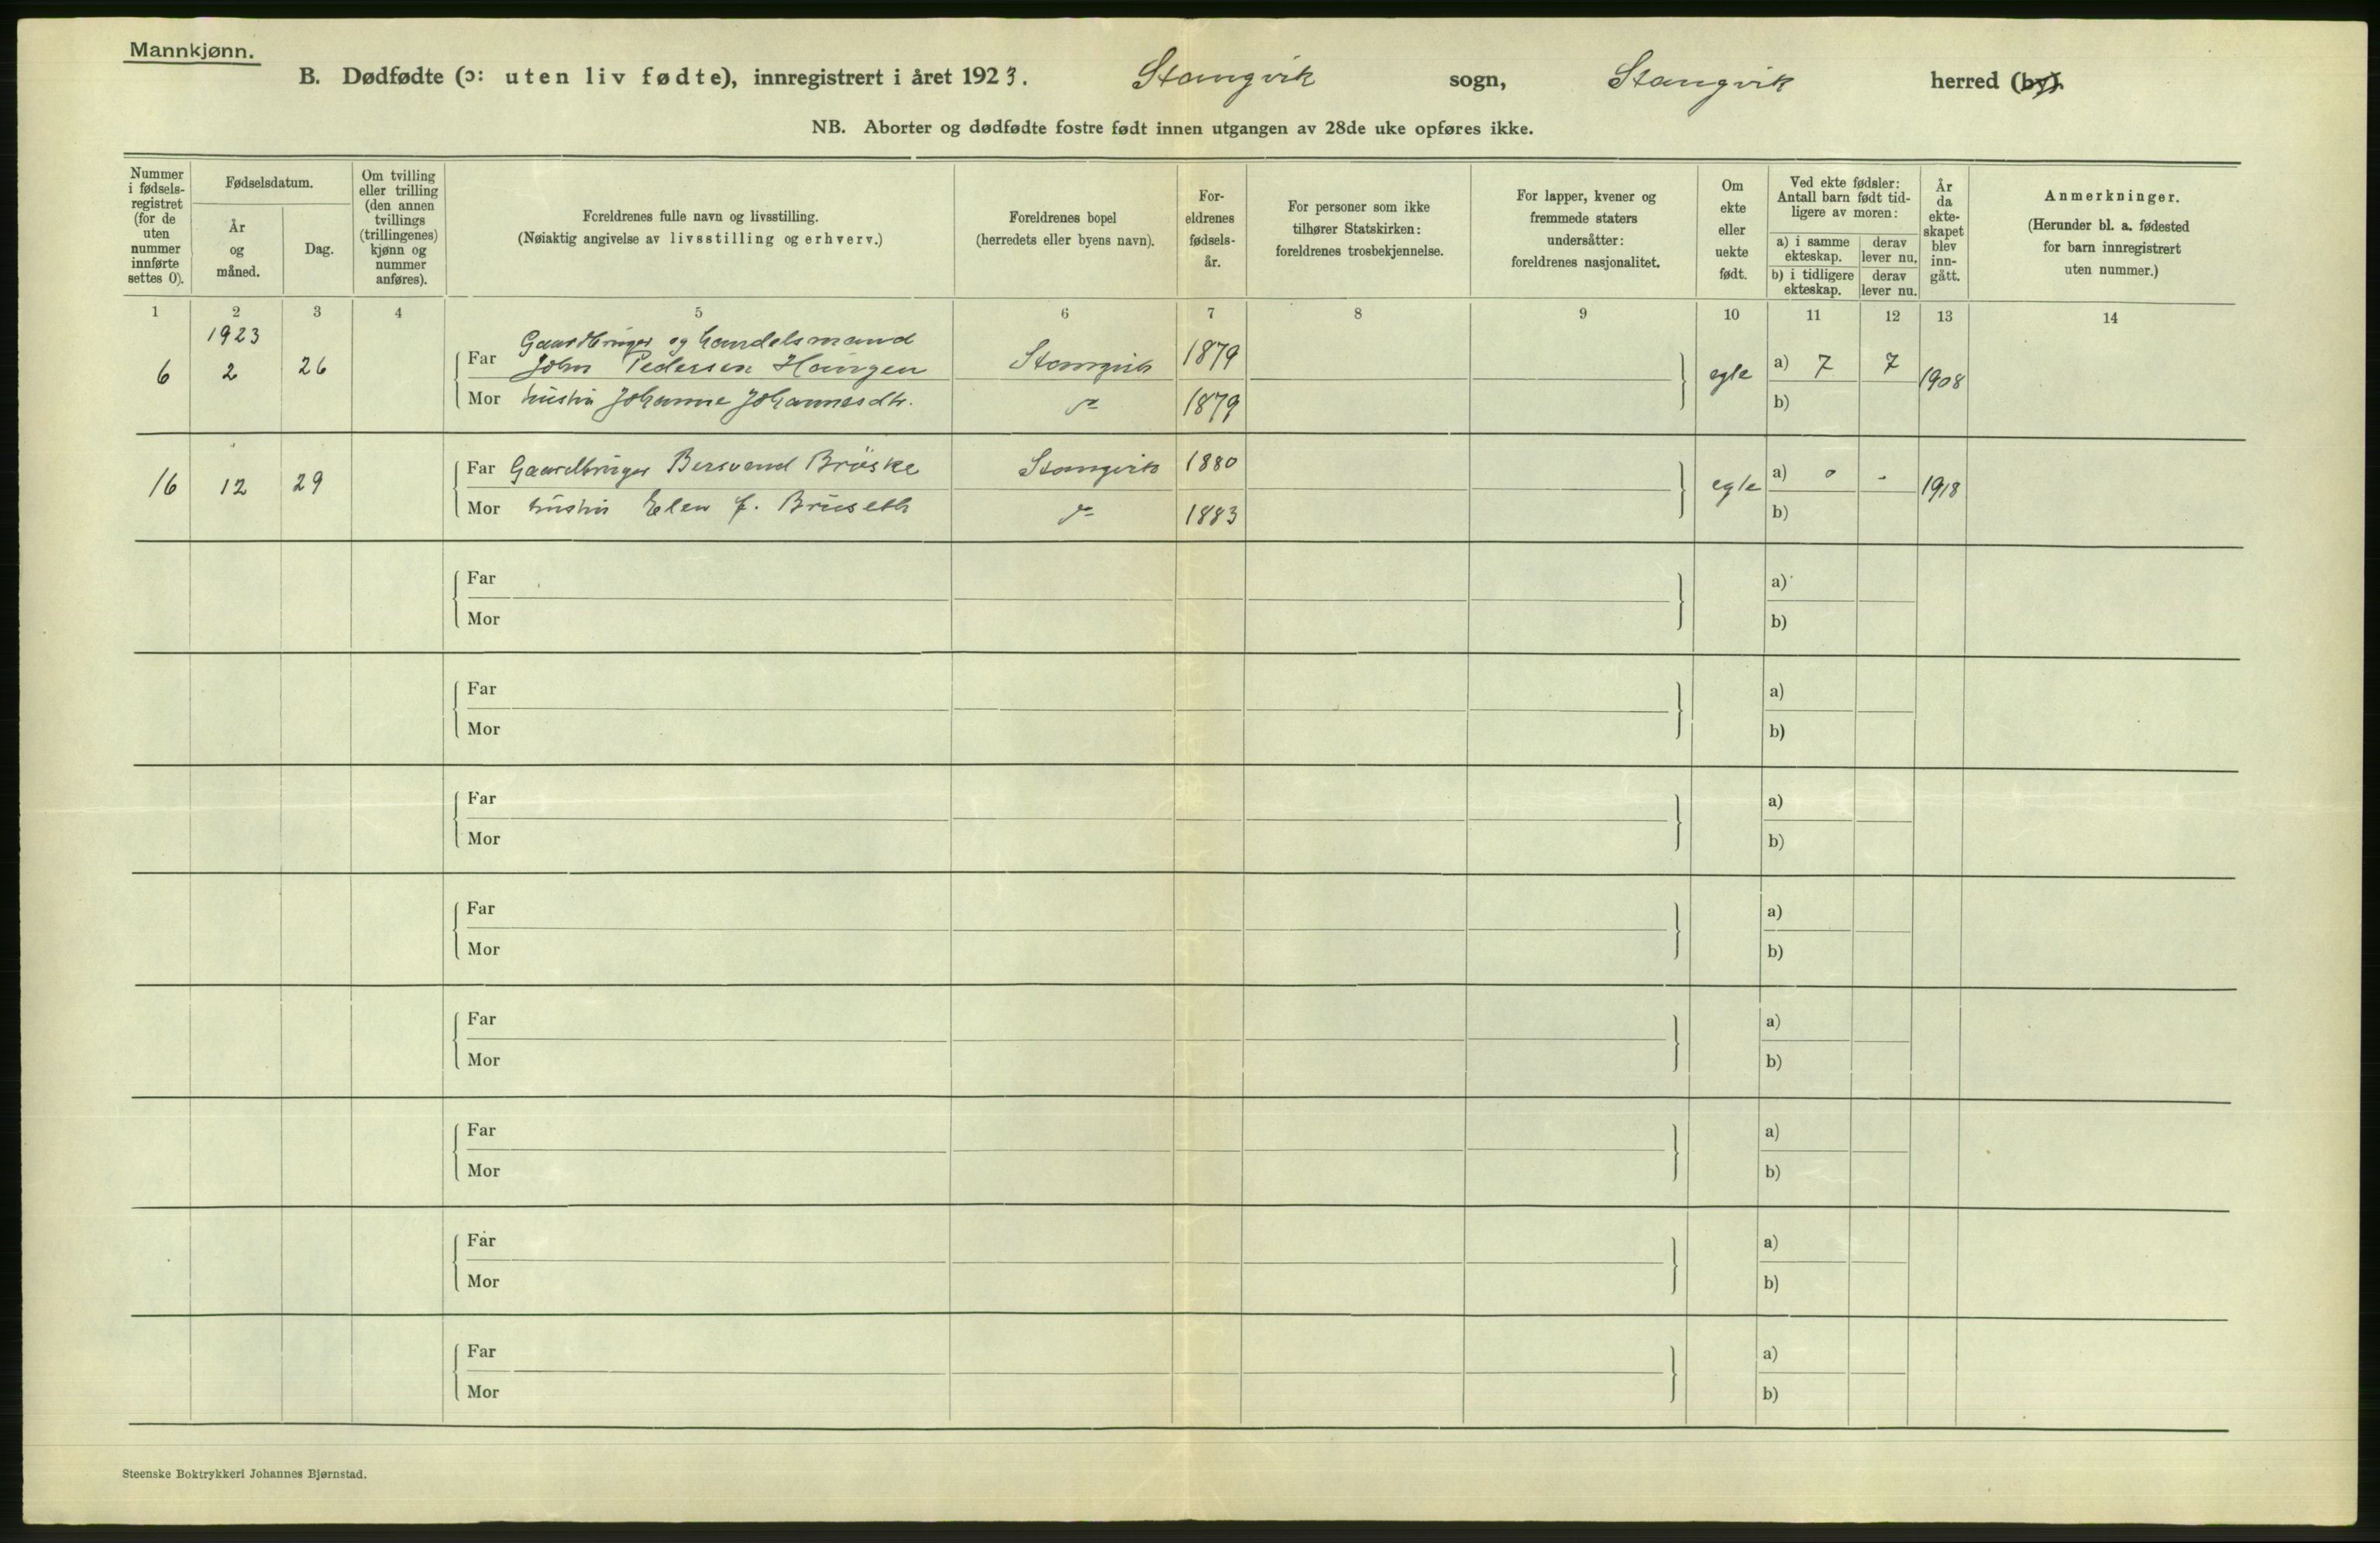 Mannkjønn.
B. Dødfødte (ɔ: uten liv fødte), innregistrert i året 1923. Stangvik sogn, Stangvik herred (by).
NB. Aborter og dødfødte fostre født innen utgangen av 28de uke opføres ikke.
Nummer i fødsels-registret (for de uten nummer innførte settes 0).
Fødselsdatum.
År og måned.
Dag.
Om tvilling eller trilling (den annen tvillings (trillingenes) kjønn og nummer anføres).
Foreldrenes fulle navn og livsstilling.
(Nøiaktig angivelse av livsstilling og erhverv.)
Foreldrenes bopel
(herredets eller byens navn).
For-eldrenes fødsels-år.
For personer som ikke tilhører Statskirken: foreldrenes trosbekjennelse.
For lapper, kvener og fremmede staters undersåtter: foreldrenes nasjonalitet.
Om ekte eller uekte født.
Ved ekte fødsler: Antall barn født tid-ligere av moren:
a) i samme ekteskap.
derav lever nu.
b) i tidligere ekteskap.
derav lever nu.
År da ekte-skapet blev inn-gått.
Anmerkninger.
(Herunder bl. a. fødested for barn innregistrert uten nummer.)
1 2 3 4 5 6 7 8 9 10 11 12 13 14
1923 Gaardbruger og handelsmand
6 2 26 Far John Pedersen Stangvik 1879 egte a) 7 7 1908
Mor hustru Johanne Johannesdtr. do 1879 b)
16 12 29 Far Gaardbruger Bersvend Brøske Stangvik 1880 egte a) 0 - 1918
Mor hustru Elen Bruseth do 1883 b)
Far a)
Mor b)
Far a)
Mor b)
Far a)
Mor b)
Far a)
Mor b)
Far a)
Mor b)
Far a)
Mor b)
Far a)
Mor b)
Far a)
Mor b)
Steenske Boktrykkeri Johannes Bjørnstad.